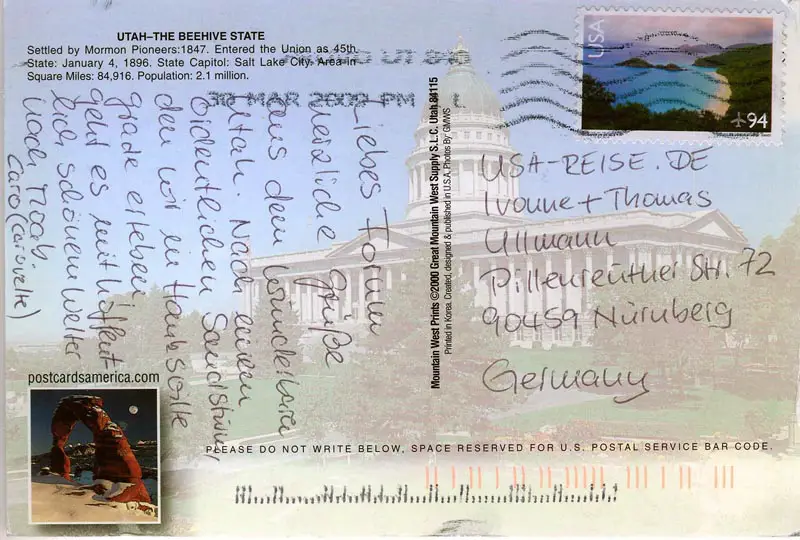 UTAH–THE BEEHIVE STATE
Settled by Mormon Pioneers:1847. Entered the Union as 45th
State: January 4, 1896. State Capitol: Salt Lake City. Area in
Square Miles: 84,916. Population: 2.1 million.
30 MAR PM
USA
94
Liebes Forum
herzliche Grüße
aus dem wunderbaren
Utah. Nach einem
ordentlichen Sandsturm,
den wir in Hanksville
grade erleben,
geht es mit hoffent-
lich schönem Wetter
nach Moab.
Caro (carovette)
Mountain West Prints ©2000 Great Mountain West Supply S.L.C. Utah 84115
Printed in Korea. Created, designed & published in U.S.A. Photos By GMWS
USA-REISE.DE
Ivonne + Thomas
Ullmann
Pillenreuther Str. 72
90459 Nürnberg
Germany
postcardsamerica.com
PLEASE DO NOT WRITE BELOW, SPACE RESERVED FOR U.S. POSTAL SERVICE BAR CODE.